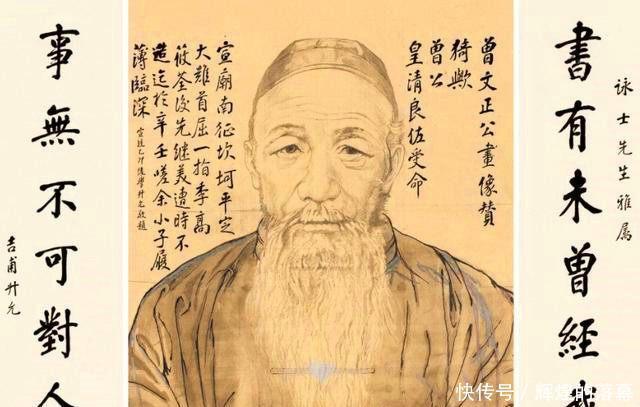 書有未曾經
詠士先生雅屬
曾文正公畫像贊
猗歟
曾公
皇清良佐受命
宣廟南征坎坷平定
大難首屈一指李高
筱荃後先繼美遭時不
造迄於辛壬嗟余小子履
薄臨深
宣統乙卯後學升允敬題
事無不可對人
吉甫升允
快传号/辉煌的落幕